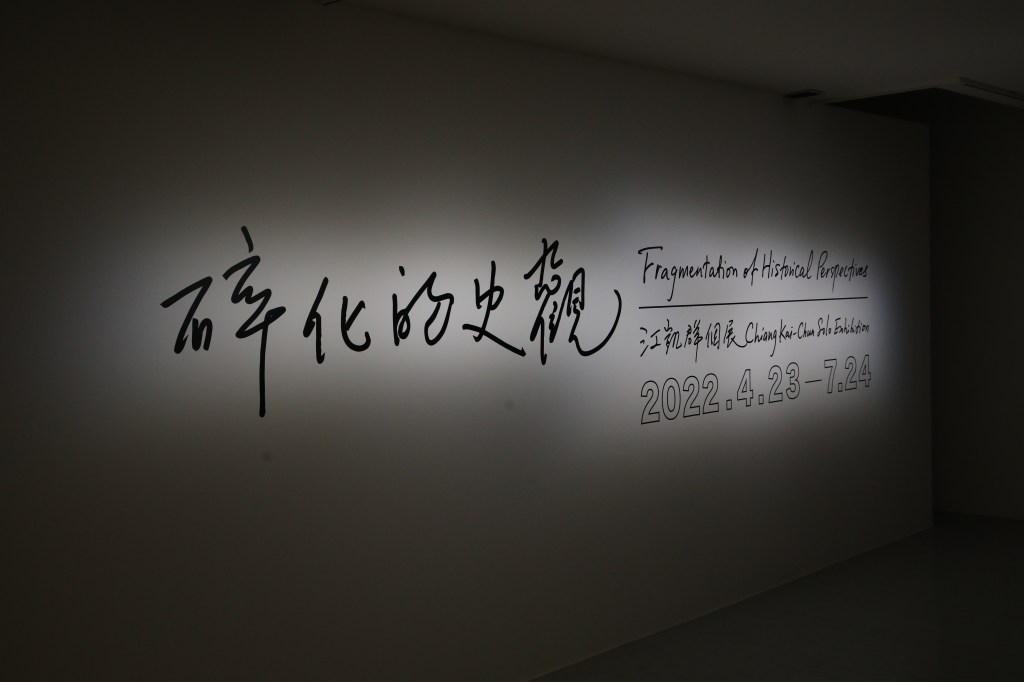 碎化的史觀
Fragmentation of Historical Perspectives
江凱群個展 Chiang Kai-Chun Solo Exhibition
2022.4.23—7.24